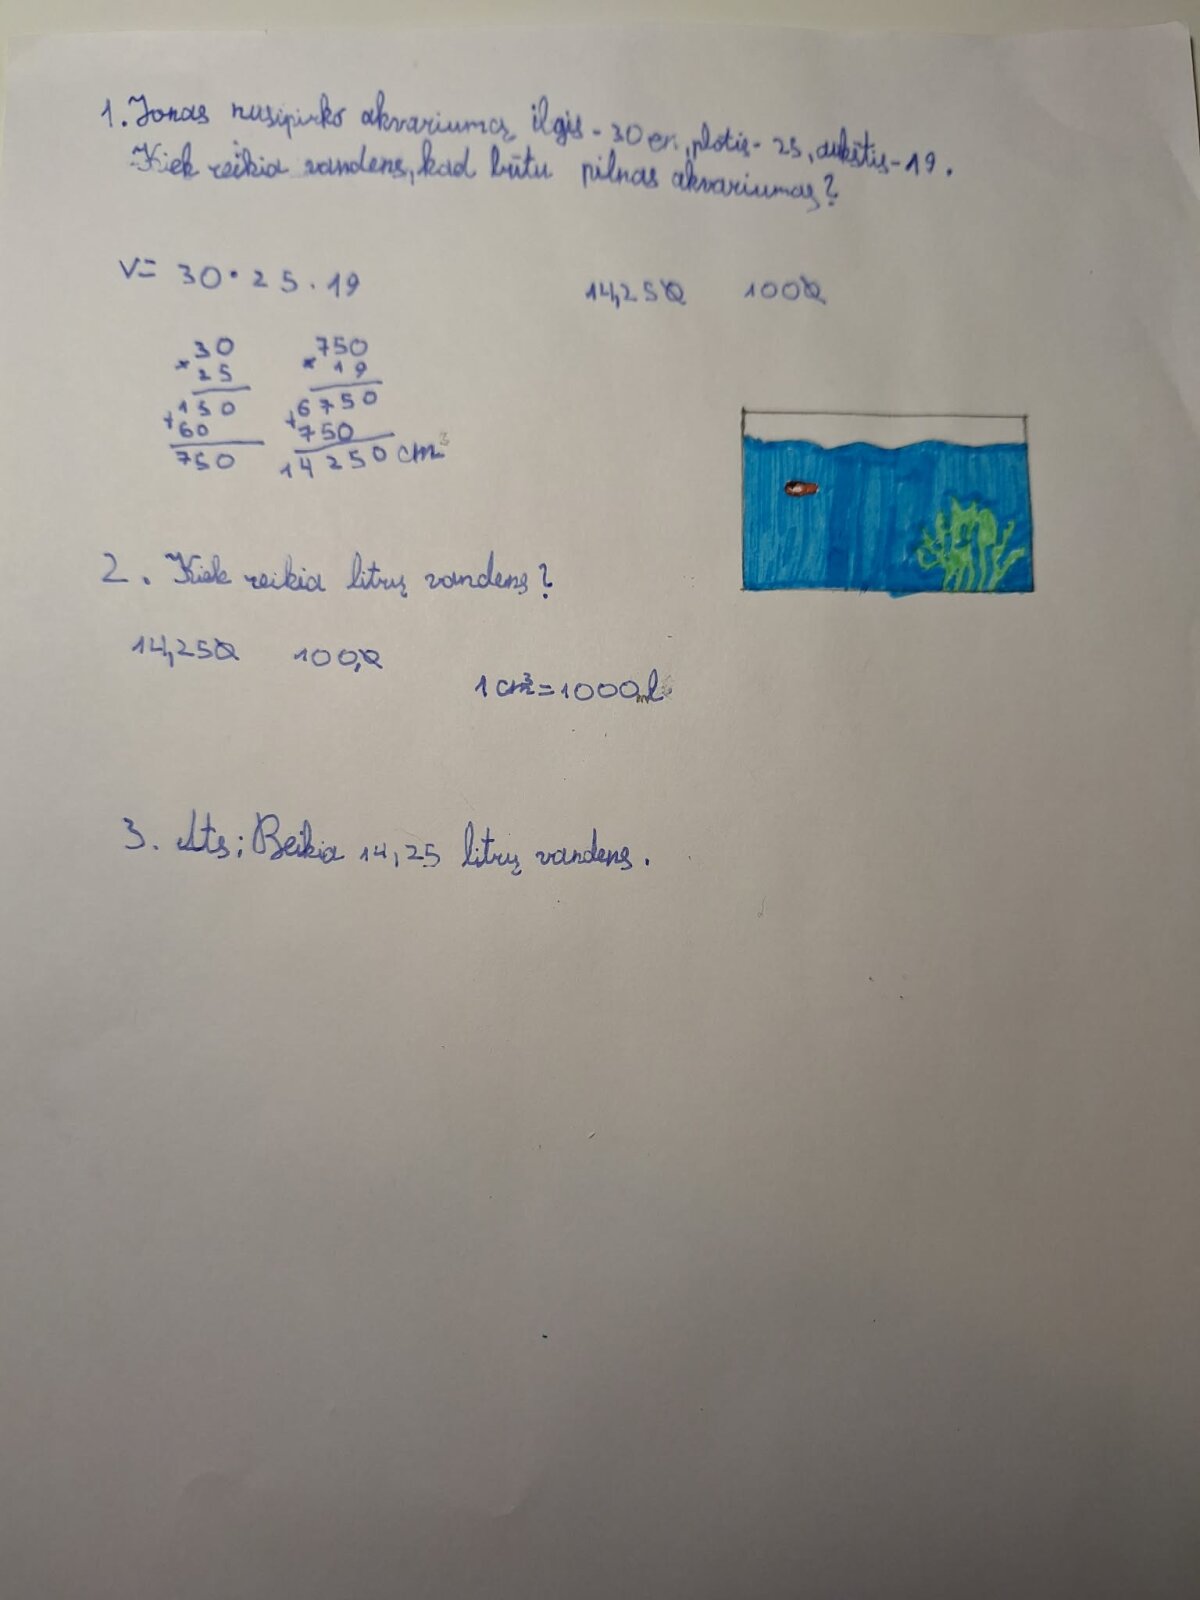 1. Jonas nusipirko akvariumą ilgis - 30 cm, plotis - 25, aukštis - 19.
Kiek reikia vandens, kad būtu pilnas akvariumas?
V= 30 · 25 . 19
14,250 1000
30 750
× 25 × 19
150 6750
+ 60 + 750
750 14250 cm³
2. Kiek reikia litrų vandens?
14,250 100,0
1 cm³ = 1000 ml
3. Ats; Reikia 14,25 litrų vandens.